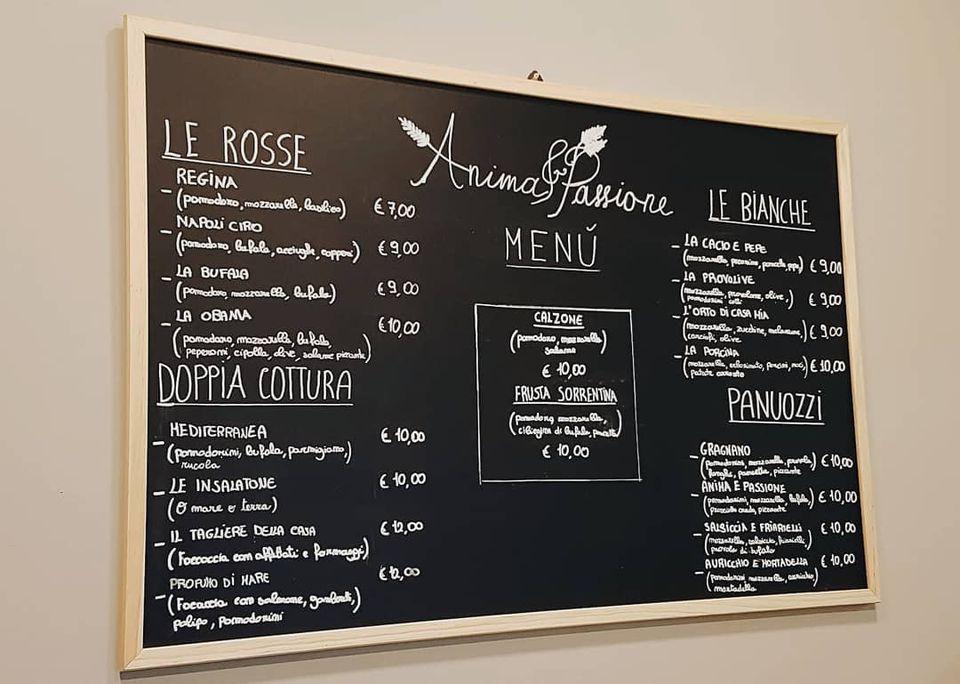 Anima & Passione
MENÚ
LE ROSSE
- REGINA
(pomodoro, mozzarella, basilico) € 7,00
- NAPOLI CIRO
(pomodoro, bufala, acciughe, capperi) € 9,00
- LA BUFALA
(pomodoro, mozzarella, bufala) € 9,00
- LA OBAMA € 10,00
(pomodoro, mozzarella, bufala,
peperoni, cipolla, olive, salame piccante)
DOPPIA COTTURA
- MEDITERRANEA € 10,00
(pomodorini, bufala, parmigiano,)
rucola
- LE INSALATONE € 10,00
(O mare o terra)
- IL TAGLIERE DELLA CASA € 12,00
(Focaccia con affettati e formaggi)
- PROFUMO DI MARE € 12,00
(Focaccia con salmone, gamberi,)
polipo, pomodorini
CALZONE
(pomodoro, mozzarella,)
salame
€ 10,00
FRUSTA SORRENTINA
(pomodoro, mozzarella,
ciliegina di bufala,
€ 10,00
LE BIANCHE
- LA CACIO E PEPE
(mozzarella, pecorino, pancetta, pepe) € 9,00
- LA PROVOLIVE
(mozzarella, provolone, olive,) € 9,00
pomodorini
- L'ORTO DI CASA MIA
(mozzarella, zucchine, melanzane,) € 9,00
carciofi, olive
- LA PORCINA
(mozzarella, porcini, noci,) € 10,00
PANUOZZI
- GRAGNANO
(pomodorini, mozzarella, provola,) € 10,00
funghi, pancetta, piccante
- ANIMA E PASSIONE
(pomodorini, mozzarella, bufala,) € 10,00
prosciutto crudo, piccante
- SALSICCIA E FRIARIELLI € 10,00
(mozzarella, salsiccia, friarielli,)
provola di bufala
- AURICCHIO E MORTADELLA € 10,00
(pomodorini mozzarella, auricchio,)
mortadella